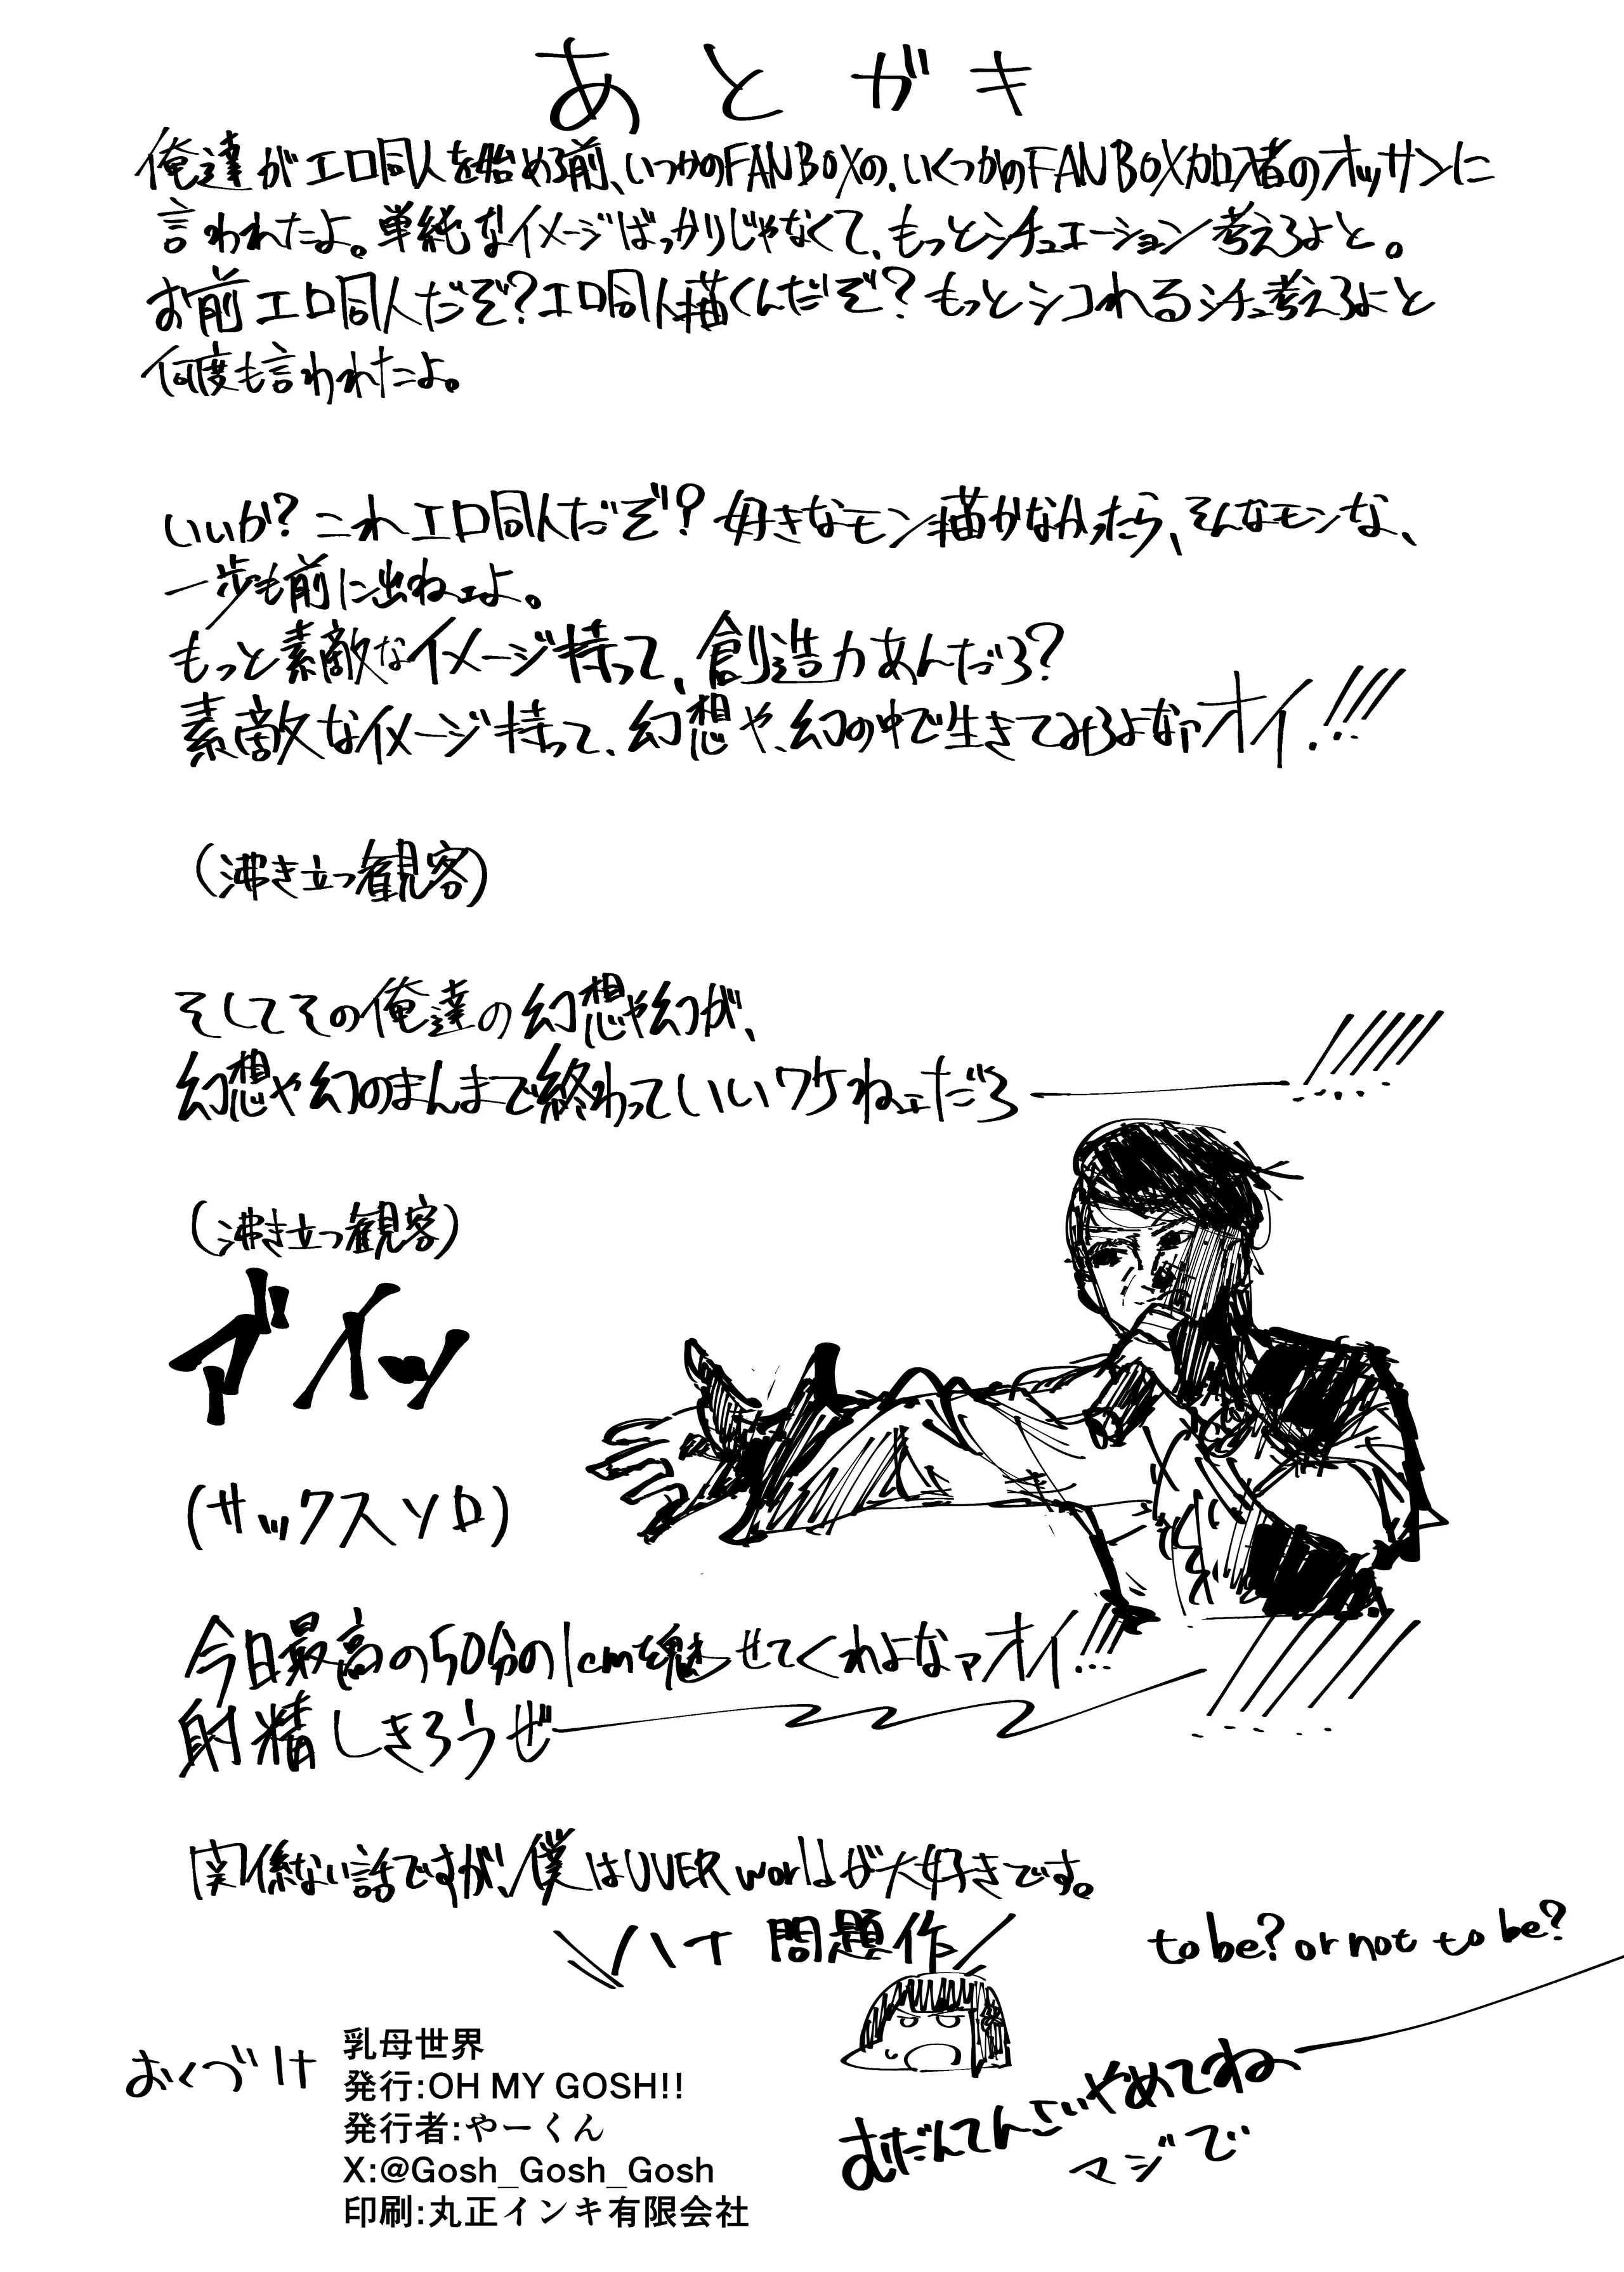 あとがき
俺達がエロ同人を始める前、いつかのFANBOXの、いくつかのFANBOX加入者のオッサンに
言われたよ。単純なイメージばっかりじゃなくて、もっとシチュエーション考えろよと。
お前エロ同人だぞ?エロ同人描くんだぞ?もっとシコれるシチュ考えろよと
何度も言われたよ。
いいか?これエロ同人だぞ?好きなモン描かなかったら、そんなモンな、
一歩も前に出ねェよ。
もっと素敵なイメージ持って、創造力あんだろ?
素敵なイメージ持って、幻想や、幻の中で生きてみろよなァオイ!!!
(沸き立つ観客)
そしてその俺達の幻想や幻が、
幻想や幻のまんまで終わっていいワケねェだろ――!!!!!
(沸き立つ観客)
ア゛イッ
(サックスソロ)
今日最高の50分の1cmを魅せてくれよなァオイ!!!
射精しきろうぜ――!!!!!
関係ない話ですが、僕はUVERworldが大好きです。
\ハイ 問題作/
to be? or not to be?
おくづけ
乳母世界
発行:OH MY GOSH!!
発行者:やーくん
X:@Gosh_Gosh_Gosh
印刷:丸正インキ有限会社
むだんてんさいやめてね
マジで